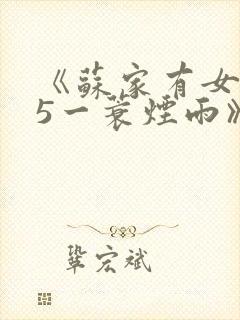 《蘇家有女
5一蓑煙雨》
鞏宏斌